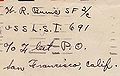 H. R. Davis SF 3/c
USS L.S.I. 691
c/o Flt P.O.
San Francisco, Calif.